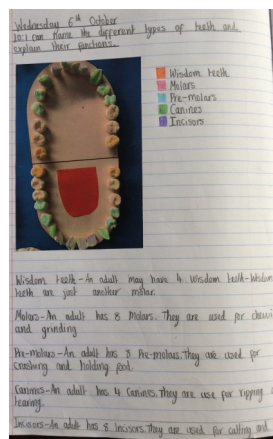 Wednesday 6th October
LO: I can name the different types of teeth and
explain their functions.
Wisdom teeth
Molars
Pre-molars
Canines
Incisors
Wisdom teeth - An adult may have 4 wisdom teeth - Wisdom
teeth are just another molar.
Molars - An adult has 8 Molars. They are used for
and grinding
Pre-molars - An adult has 8 Pre-molars. They are used for
crushing and holding food.
Canines - An adult has 4 Canines. They are use for ripping
tearing.
Incisors - An adult has 8 Incisors. They are used for cutting and